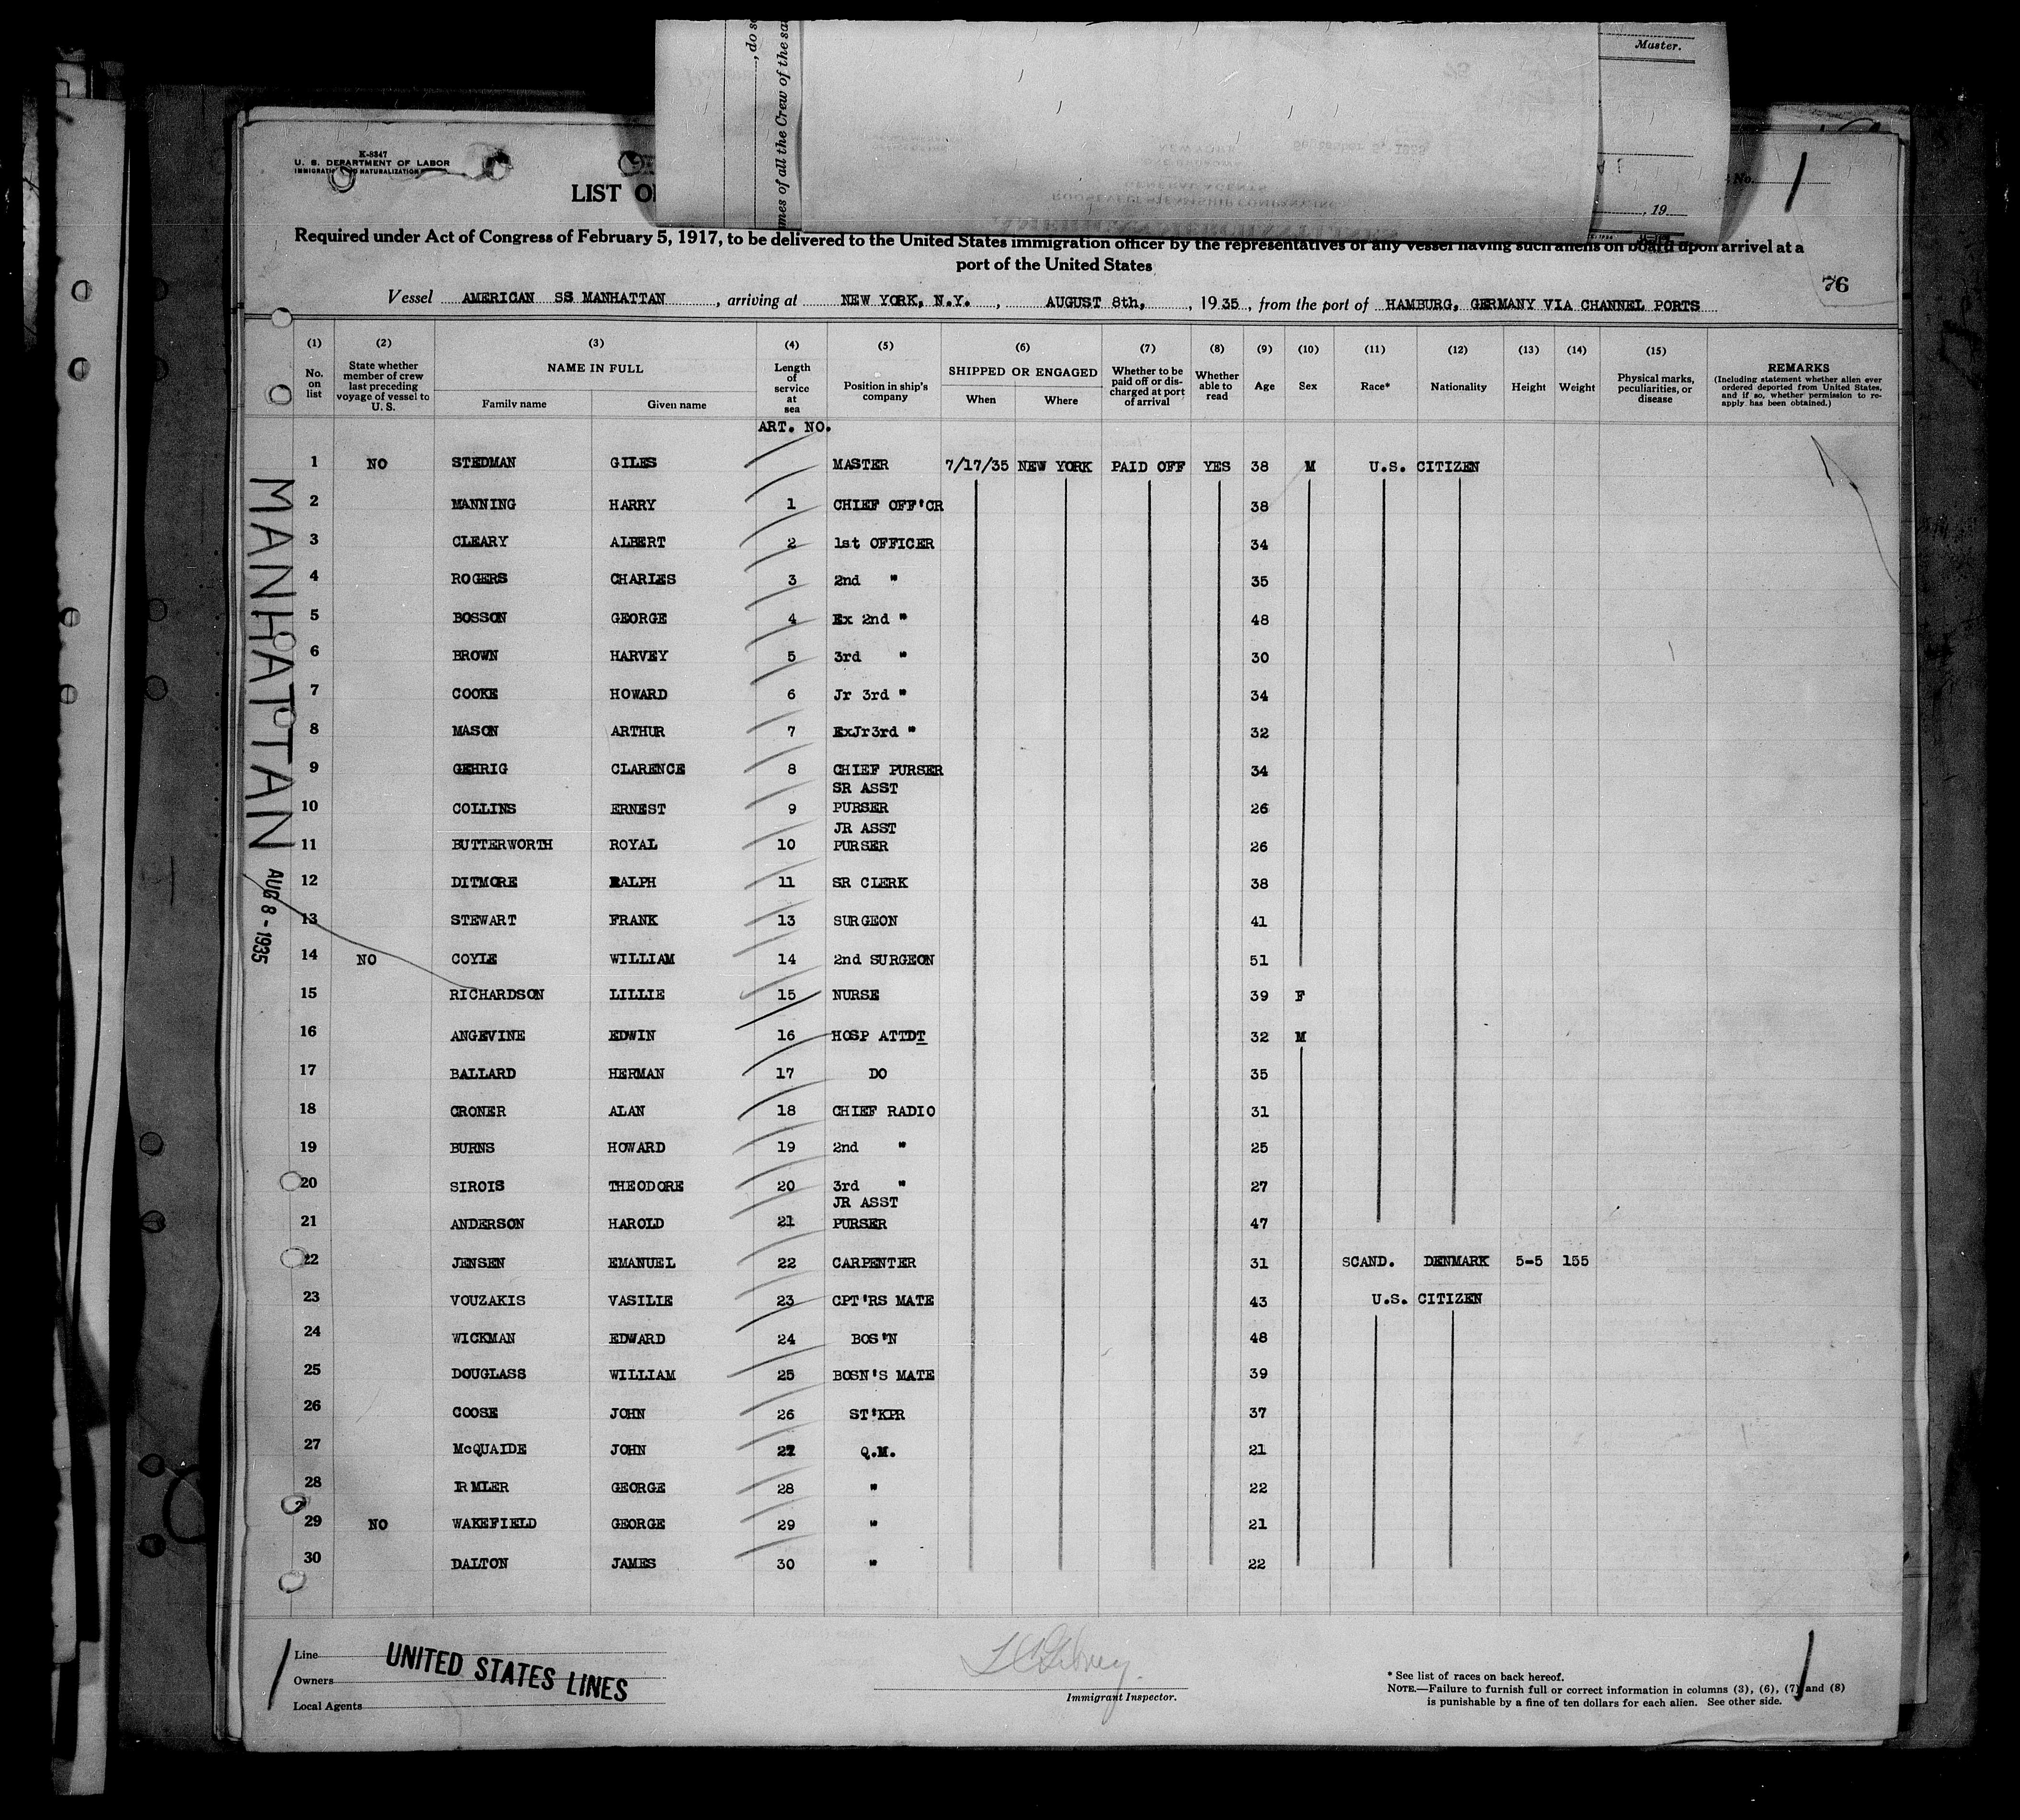 Master.
, do s
mes of all the Crew of the sa
, 19
K-8347
U. S. DEPARTMENT OF LABOR
LIST O
No.
Required under Act of Congress of February 5, 1917, to be delivered to the United States immigration officer by the representatives of any vessel having such aliens on board upon arrival at a
port of the United States
76
Vessel AMERICAN SS MANHATTAN , arriving at NEW YORK, N.Y. , AUGUST 8th, , 1935, from the port of HAMBURG, GERMANY VIA CHANNEL PORTS
(1) (2) (3) (4) (5) (6) (7) (8) (9) (10) (11) (12) (13) (14) (15)
No. on list
State whether member of crew last preceding voyage of vessel to U. S.
NAME IN FULL
Family name
Given name
Length of service at sea
Position in ship's company
SHIPPED OR ENGAGED
When
Where
Whether to be paid off or discharged at port of arrival
Whether able to read
Age
Sex
Race*
Nationality
Height
Weight
Physical marks, peculiarities, or disease
REMARKS
(Including statement whether alien ever ordered deported from United States, and if so, whether permission to reapply has been obtained.)
ART. NO.
1 NO STEDMAN GILES MASTER 7/17/35 NEW YORK PAID OFF YES 38 M U.S. CITIZEN
2 MANNING HARRY 1 CHIEF OFF'CR 38
3 CLEARY ALBERT 2 1st OFFICER 34
4 ROGERS CHARLES 3 2nd " 35
5 BOSSON GEORGE 4 Ex 2nd " 48
6 BROWN HARVEY 5 3rd " 30
7 COOKE HOWARD 6 Jr 3rd " 34
8 MASON ARTHUR 7 ExJr3rd " 32
9 GEHRIG CLARENCE 8 CHIEF PURSER 34
10 COLLINS ERNEST 9 SR ASST PURSER 26
11 BUTTERWORTH ROYAL 10 JR ASST PURSER 26
12 DITMORE RALPH 11 SR CLERK 38
13 STEWART FRANK 13 SURGEON 41
14 NO COYLE WILLIAM 14 2nd SURGEON 51
15 RICHARDSON LILLIE 15 NURSE 39 F
16 ANGEVINE EDWIN 16 HOSP ATTDT 32 M
17 BALLARD HERMAN 17 DO 35
18 CRONER ALAN 18 CHIEF RADIO 31
19 BURNS HOWARD 19 2nd " 25
20 SIROIS THEODORE 20 3rd " 27
21 ANDERSON HAROLD 21 JR ASST PURSER 47
22 JENSEN EMANUEL 22 CARPENTER 31 SCAND. DENMARK 5-5 155
23 VOUZAKIS VASILIE 23 CPT'RS MATE 43 U.S. CITIZEN
24 WICKMAN EDWARD 24 BOS'N 48
25 DOUGLASS WILLIAM 25 BOSN'S MATE 39
26 COOSE JOHN 26 ST'KPR 37
27 McQUAIDE JOHN 27 Q.M. 21
28 IRMLER GEORGE 28 " 22
29 NO WAKEFIELD GEORGE 29 " 21
30 DALTON JAMES 30 " 22
MANHATTAN
AUG 8 - 1935
Line
Owners
Local Agents
UNITED STATES LINES
Immigrant Inspector.
* See list of races on back hereof.
NOTE.—Failure to furnish full or correct information in columns (3), (6), (7) and (8)
is punishable by a fine of ten dollars for each alien. See other side.